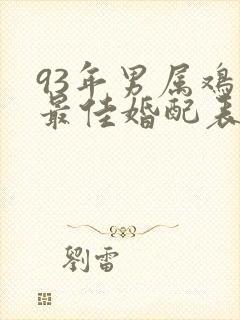 93年男属鸡
最佳婚配表
劉雷